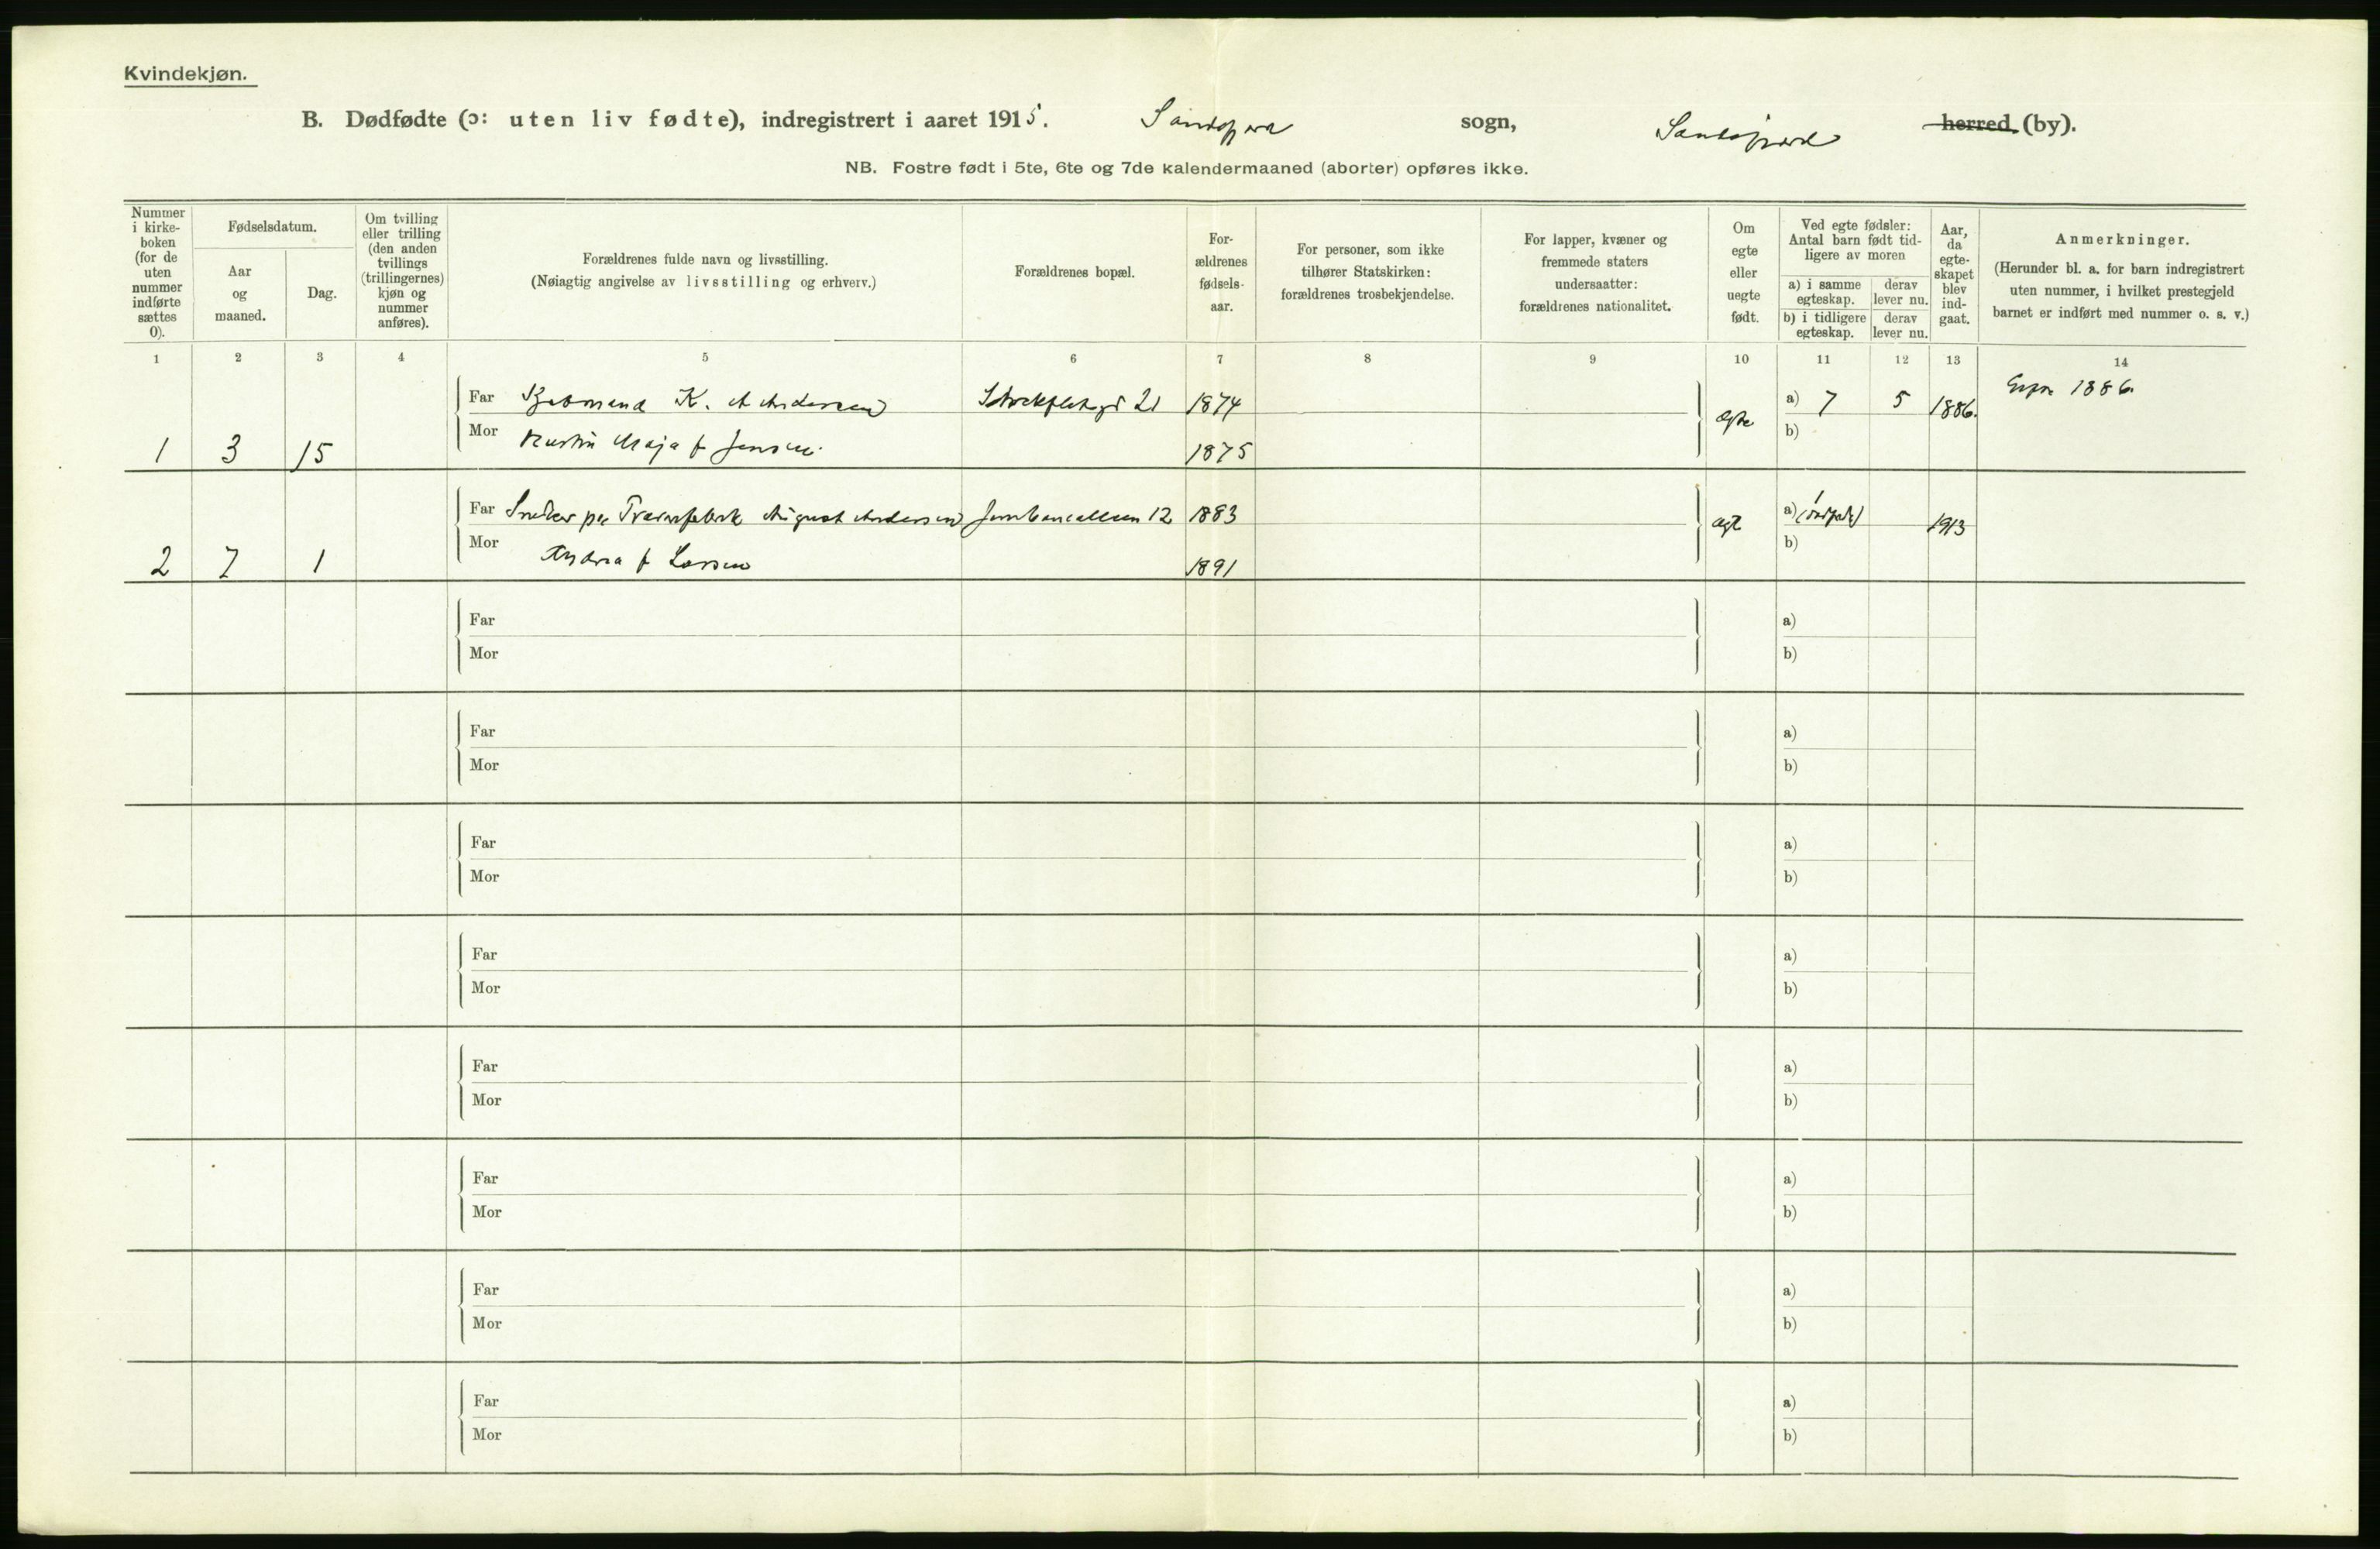 Kvindekjøn.
B. Dødfødte (ɔ: uten liv fødte), indregistrert i aaret 1915. Sandefjord sogn, Sandefjord herred (by).
NB. Fostre født i 5te, 6te og 7de kalendermaaned (aborter) opføres ikke.
Nummer i kirke-boken (for de uten nummer indførte sættes 0).
Fødselsdatum.
Aar og maaned.
Dag.
Om tvilling eller trilling (den anden tvillings (trillingernes) kjøn og nummer anføres).
Forældrenes fulde navn og livsstilling.
(Nøiagtig angivelse av livsstilling og erhverv.)
Forældrenes bopæl.
For-ældrenes fødsels-aar.
For personer, som ikke tilhører Statskirken: forældrenes trosbekjendelse.
For lapper, kvæner og fremmede staters undersaatter: forældrenes nationalitet.
Om egte eller uegte født.
Ved egte fødsler: Antal barn født tid-ligere av moren
a) i samme egteskap.
derav lever nu.
b) i tidligere egteskap.
derav lever nu.
Aar, da egte-skapet blev ind-gaat.
Anmerkninger.
(Herunder bl. a. for barn indregistrert uten nummer, i hvilket prestegjeld barnet er indført med nummer o. s. v.)
1 2 3 4 5 6 7 8 9 10 11 12 13 14
Far K. A Andersen 21 1874 a) 7 5 1886. 1886
1 3 15 Mor Maja f Jensen. 1875 egte b)
Far August Andersen 12 1883 a) 1 1913
2 7 1 Mor f Larsen 1891 egte b)
Far a)
Mor b)
Far a)
Mor b)
Far a)
Mor b)
Far a)
Mor b)
Far a)
Mor b)
Far a)
Mor b)
Far a)
Mor b)
Far a)
Mor b)